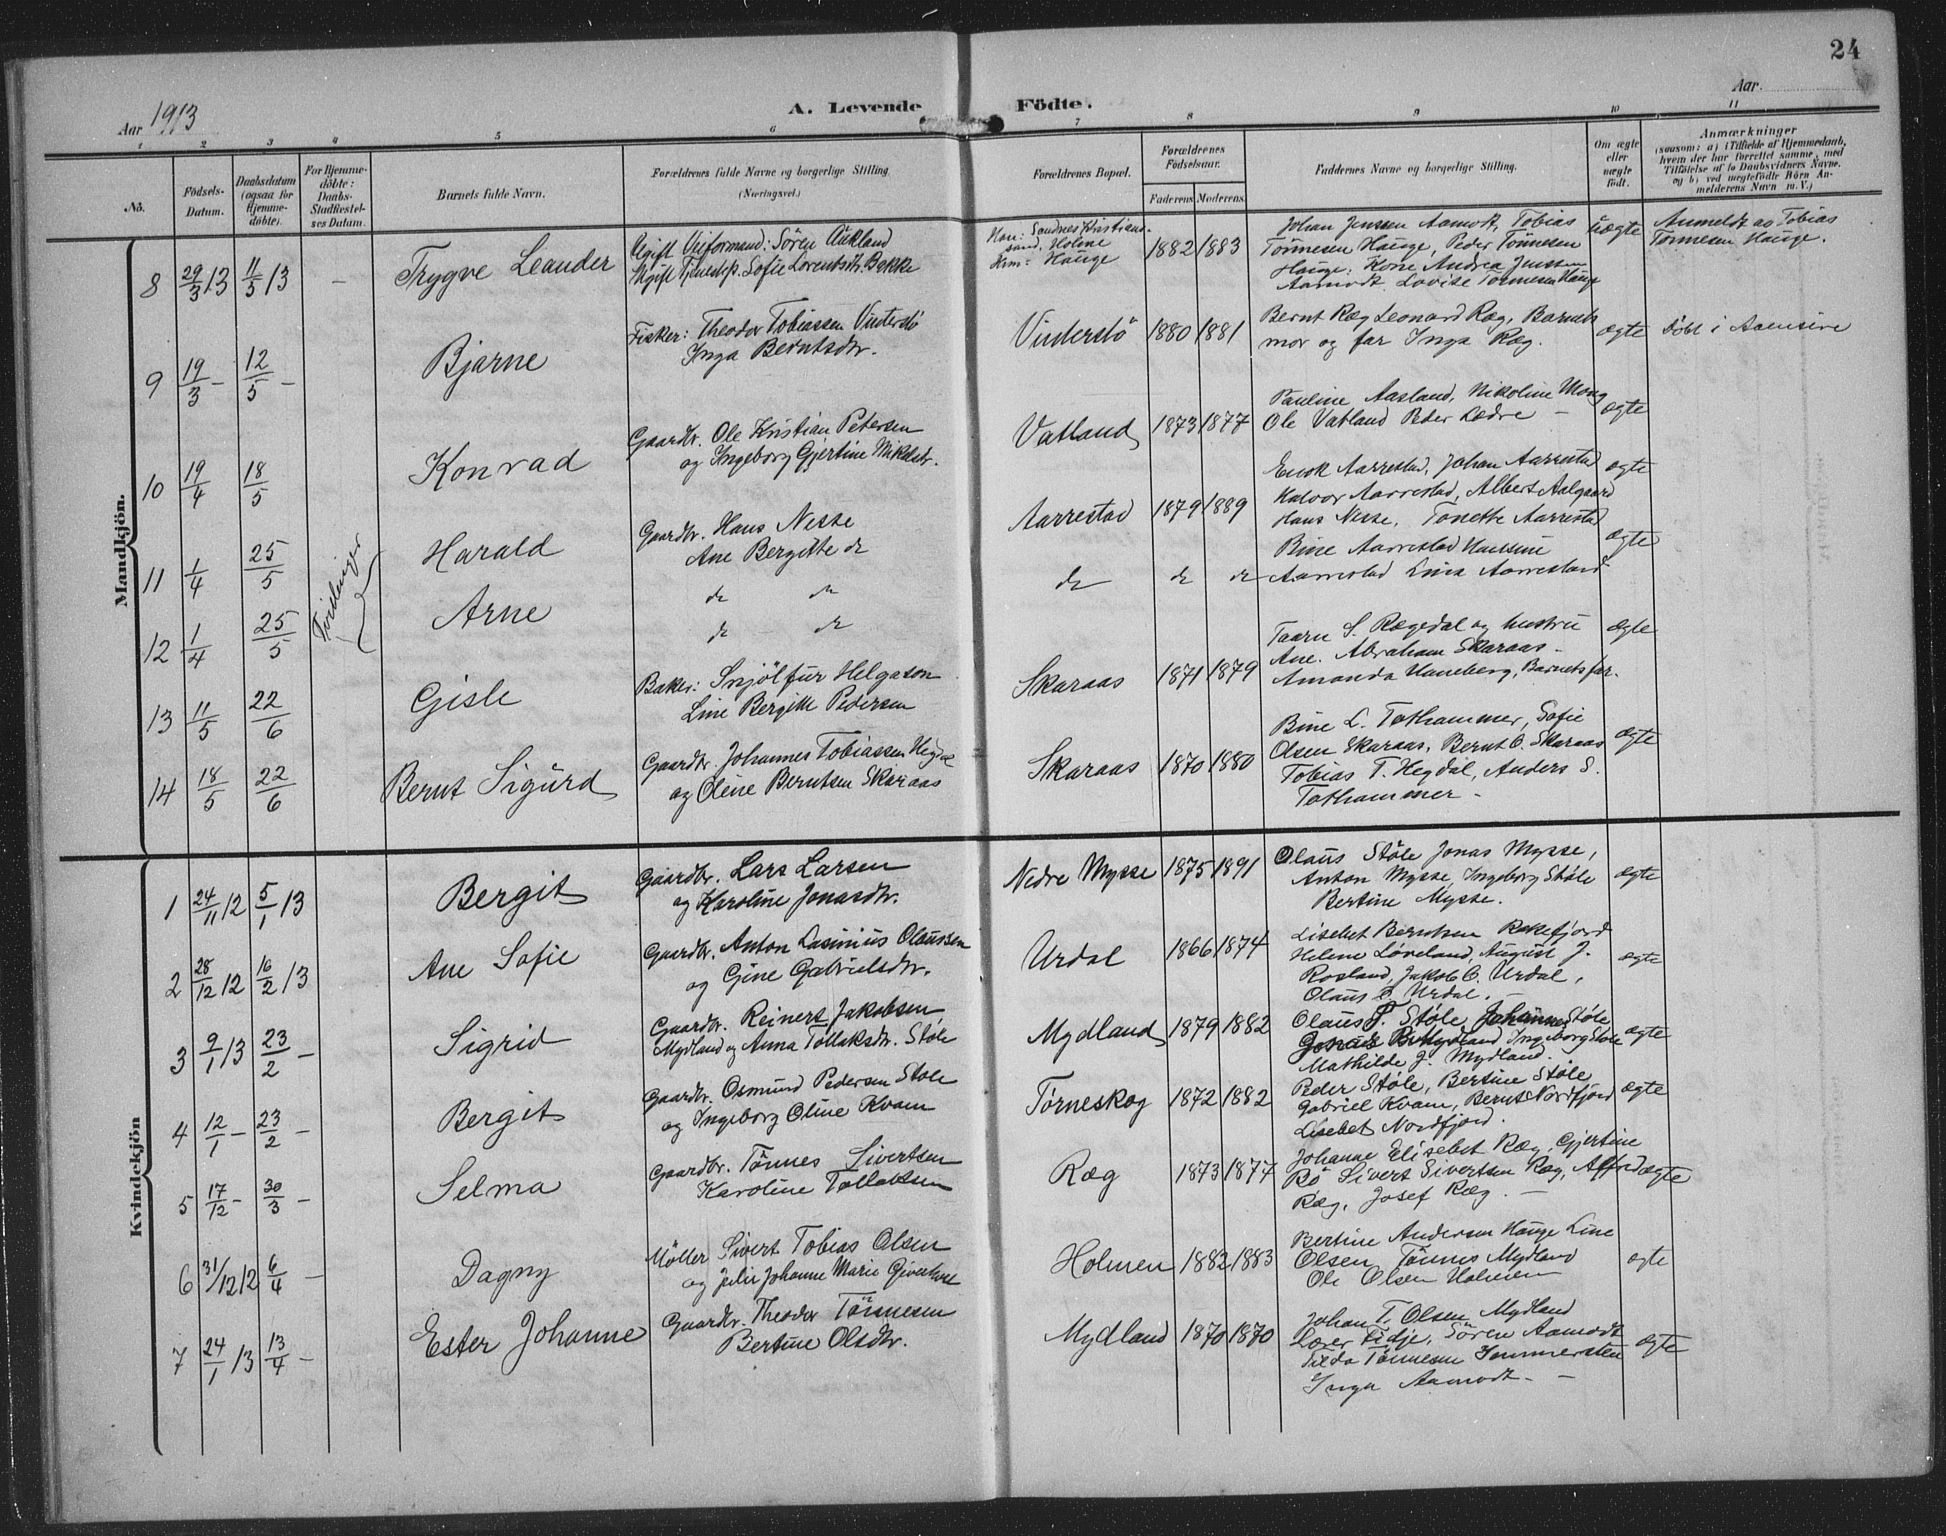 24
Aar 1913
A. Levende Födte.
Aar
1 2 3 4 5 6 7 8 9 10 11
No.
Födsels-Datum.
Daabsdatum (ogsaa for Hjemme-döbte).
For Hjemme-döbte: Daabs-Stadfæstel-ses Datum.
Barnets fulde Navn.
Forældrenes fulde Navne og borgerlige Stilling (Næringsvei.)
Forældrenes Bopæl.
Forældrenes Födselsaar.
Faderens Moderens
Faddernes Navne og borgerlige Stilling.
Om ægte eller uægte födt.
Anmærkninger
(saasom: a) i Tilfælde af Hjemmedaab,
hvem der har forrettet samme, med
Tilföielse af to Daabsvidners Navne.
og b) ved uægtefödte Börn An-
melderens Navn m. V.)
Mandkjön.
8 29/3 13 11/5 13 — Trygve Leander
Ugift Sören Aukland
Ugift Tjenestep. Sofie Lorentsdtr. Bakke
Han: Sandnes Kristiansand, Holme
Hun: Hauge
1882 1883
Johan Jensen Aamodt, Tobias
Tönnesen Hauge, Peder Tönnesen
Hauge: Kone Andrea Jensen
Aamodt. Lovise Tönnesen Hauge
uægte
Anmeldt av Tobias
Tönnesen Hauge.
9 19/3 — 12/5 — Bjarne
Fisker: Theodor Tobiassen Vinterstö
Inga Berntsdtr.
Vinterstö 1880 1881
Bernt Ræg Leonard Ræg, Barnets
mor og far Inga Ræg.
ægte
Döbt i
10 19/4 18/5 Konrad
Gaardbr. Ole Kristian Petersen
og Ingeborg Gjertine Mikelsdtr.
Vatland 1873 1877
Pauline Aasland, Nikoline Mong
Ole Vatland Peder Lædre —
ægte
11 1/4 25/5 Tvillinger Harald
Gaardbr. Hans Nesse
Ane Bergitte do
Aarrestad 1879 1889
Enok Aarrestad, Johan Aarrestad
Halvor Aarrestad, Albert Aalgaard
Hans Nesse, Tonette Aarrestad
ægte
12 1/4 25/5 Arne
do do
do do
do do do
Bine Aarrestad
Aarrestad Lina Aarrestad
ægte
13 11/5 22/6 Gisle
Baker: Snjólfur Helgason
Line Bergitte Pedersen
Skaraas 1871 1879
Taarn S. Rægedal og hustru
Ane. Abraham Skaraas.
Amanda Haneberg, Barnets far.
ægte
14 18/5 22/6 Bernt Sigurd
Gaardbr. Johannes Tobiassen Hegdal
og Oline Berntsen Skaraas
Skaraas 1870 1880
Bine L. Tothammer, Sofie
Olsen Skaraas, Bernt O. Skaraas
Tobias T. Hegdal, Anders S.
Tothammer —
ægte
Kvindekjön
1 24/11 12 5/1 13 Bergit
Gaardbr. Lars Larsen
og Karoline Jonasdtr.
Nedre Mysse 1875 1891
Olaus Støle Jonas Mysse,
Anton Mysse, Ingeborg Støle
Bertine Mysse.
ægte
2 28/12 12 16/2 13 Ane Sofie
Gaardbr. Anton Olaussen
og Gine Gabrielsdtr.
Urdal 1866 1874
Lisebet Berntsen Rekefjord
Helene Løveland, August J.
Rosland, Jakob O. Urdal,
Olaus Urdal.
ægte
3 9/1 13 23/2 — Sigrid
Gaardbr. Reinert Jakobsen
Mydland og Anna Tollaksdtr. Støle
Mydland 1879 1882
Olaus T. Støle Johannes Støle
Jonas Mydland Ingeborg Støle
Mathilde J. Mydland.
ægte
4 12/1 — 23/2 — Bergit
Gaardbr. Osmund Pedersen Støle
og Ingeborg Oline Kvam
Tørneskog 1872 1882
Peder Støle, Bertine Støle
Gabriel Kvam, Bernt Nordfjord
Lisebet Nordfjord.
ægte
5 17/12 — 30/3 — Selma
Gaardbr. Tönnes Sivertsen
Karoline Tollaksen
Ræg 1873 1877
Johanne Elisebet Ræg, Gjertine
Bö Sivert Sivertsen Ræg, Alfred
Ræg, Josef Ræg. —
ægte
6 31/12 12 6/4 — Dagny
Møller Sivert Tobias Olsen
og Julie Johanne Marie
Holmen 1882 1883
Bertine Andersen Hauge Line
Olsen Tönnes Mydland
Ole Olsen Holmen
ægte
7 24/1 13 13/4 — Ester Johanne
Gaardbr. Theodor Tönnesen
Bertine Olsdtr.
Mydland 1870 1870
Johan T. Olsen Mydland
Tidje, Sören Aamodt
Tilda Tönnesen
Inga Aamodt. —
ægte